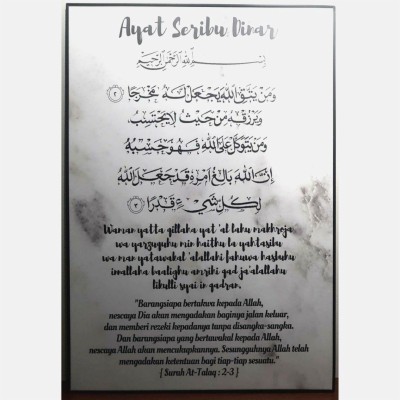 Ayat Seribu Dinar
بِسْمِ اللَّهِ الرَّحْمَٰنِ الرَّحِيمِ
وَمَن يَتَّقِ اللَّهَ يَجْعَل لَّهُ مَخْرَجًا ٢
وَيَرْزُقْهُ مِنْ حَيْثُ لَا يَحْتَسِبُ
وَمَن يَتَوَكَّلْ عَلَى اللَّهِ فَهُوَ حَسْبُهُ
إِنَّ اللَّهَ بَالِغُ أَمْرِهِ قَدْ جَعَلَ اللَّهُ
لِكُلِّ شَيْءٍ قَدْرًا ٣
Waman yatta qillaha yat 'al lahu makhroja
wa yarzuquhu min haithu la yahtasibu
wa man yatawakal 'alallahi fahuwa hasbuhu
innallaha baalighu amrihi qad ja'alallahu
likulli syai in qadran.
"Barangsiapa bertakwa kepada Allah,
nescaya Dia akan mengadakan baginya jalan keluar,
dan memberi rezeki kepadanya tanpa disangka-sangka.
Dan barangsiapa yang bertawakal kepada Allah,
nescaya Allah akan mencukupkannya. Sesungguhnya Allah telah
mengadakan ketentuan bagi tiap-tiap sesuatu."
{ Surah At-Talaq : 2-3 }